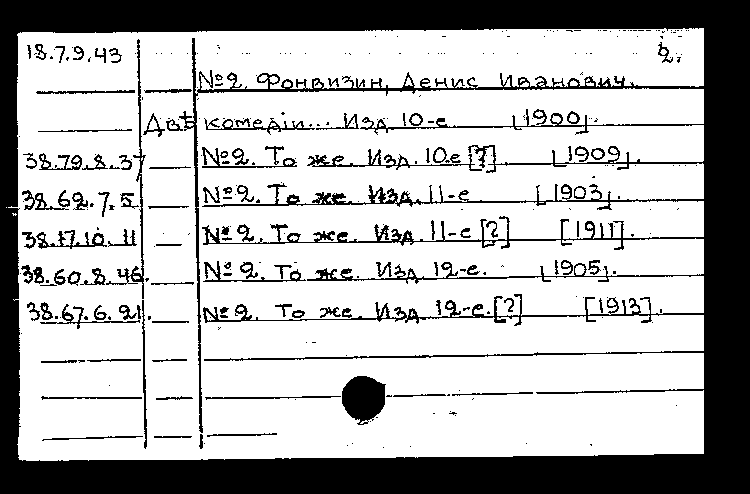 18.7.9.43 2.
№2. Фонвизин, Денис Иванович.
Двѣ комедiи... Изд. 10-е [1900].
38.79.8.37 №2. То же. Изд. 10е [?]. [1909].
38.62.7.5 №2. То же. Изд. 11-е [1903].
38.17.10.11 №2. То же. Изд. 11-е [?] [1911].
38.60.8.46. №2. То же. Изд. 12-е. [1905].
38.67.6.21. №2. То же. Изд. 12-е. [?] [1913].